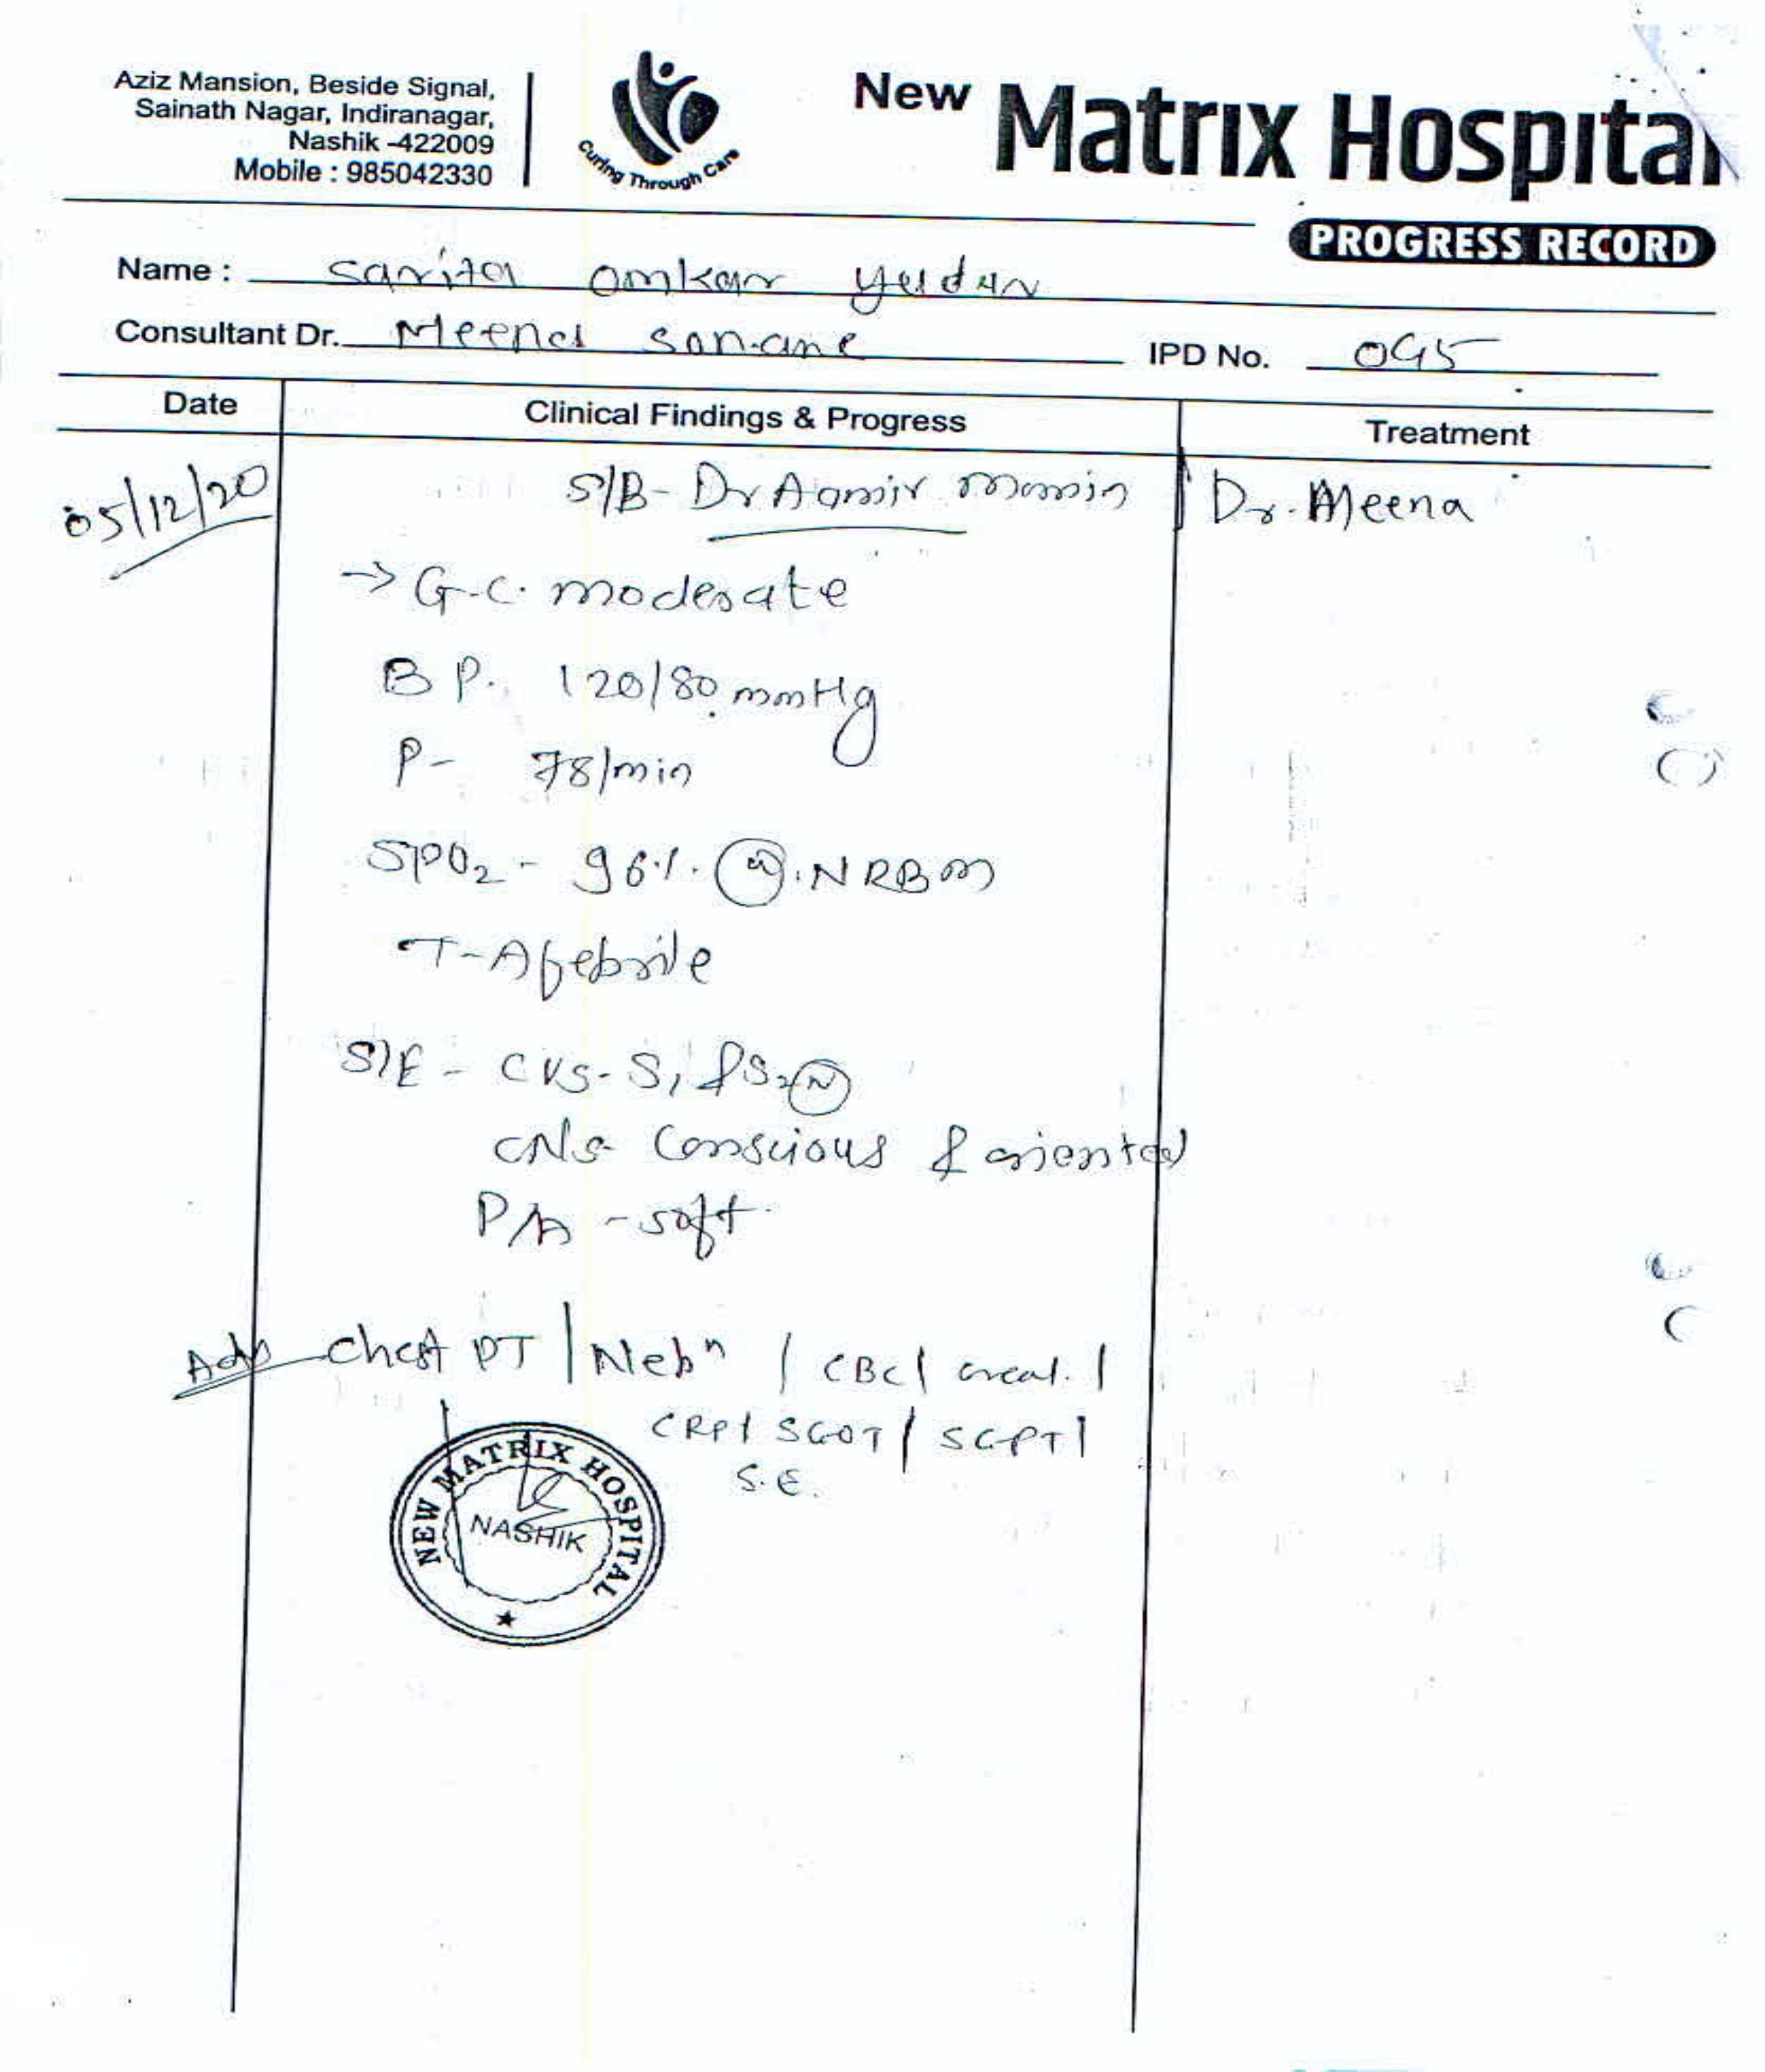 Aziz Mansion, Beside Signal,
Sainath Nagar, Indiranagar,
Nashik -422009
Mobile : 985042330
Curing Through Care
New Matrix Hospital
PROGRESS RECORD
Name : Sarita Omkar
Consultant Dr. Meena IPD No.
Date Clinical Findings & Progress Treatment
05/12/20 S/B- Dr Aamir Momin / Dr. Meena
→ G.C. moderate
B P. 120/80 mmHg
P- 78/min
SPO₂ - 96%. NRBM
T-Afebrile
S/E - CVS- S₁ & S₂ (N)
CNS- Conscious & oriented
P/A - soft.
Adv Chest PT | Nebⁿ / CBC / creat. /
CRP / SGOT / SGPT /
S.E.
NEW MATRIX HOSPITAL
NASHIK